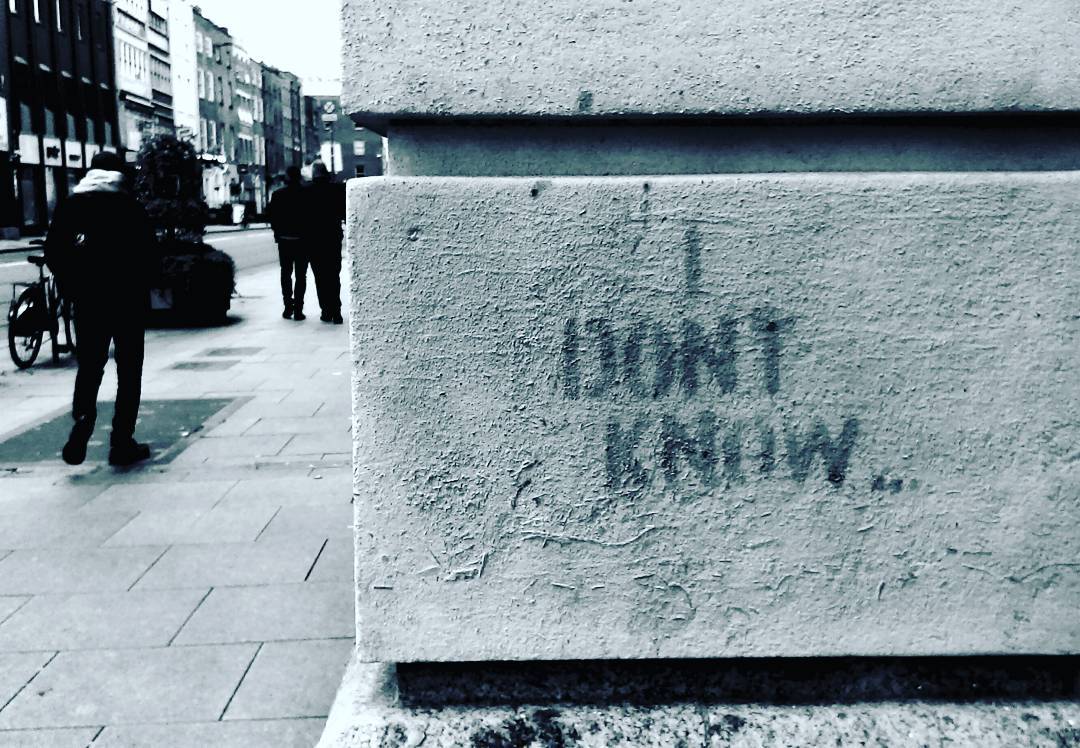 I
DONT
KNOW..